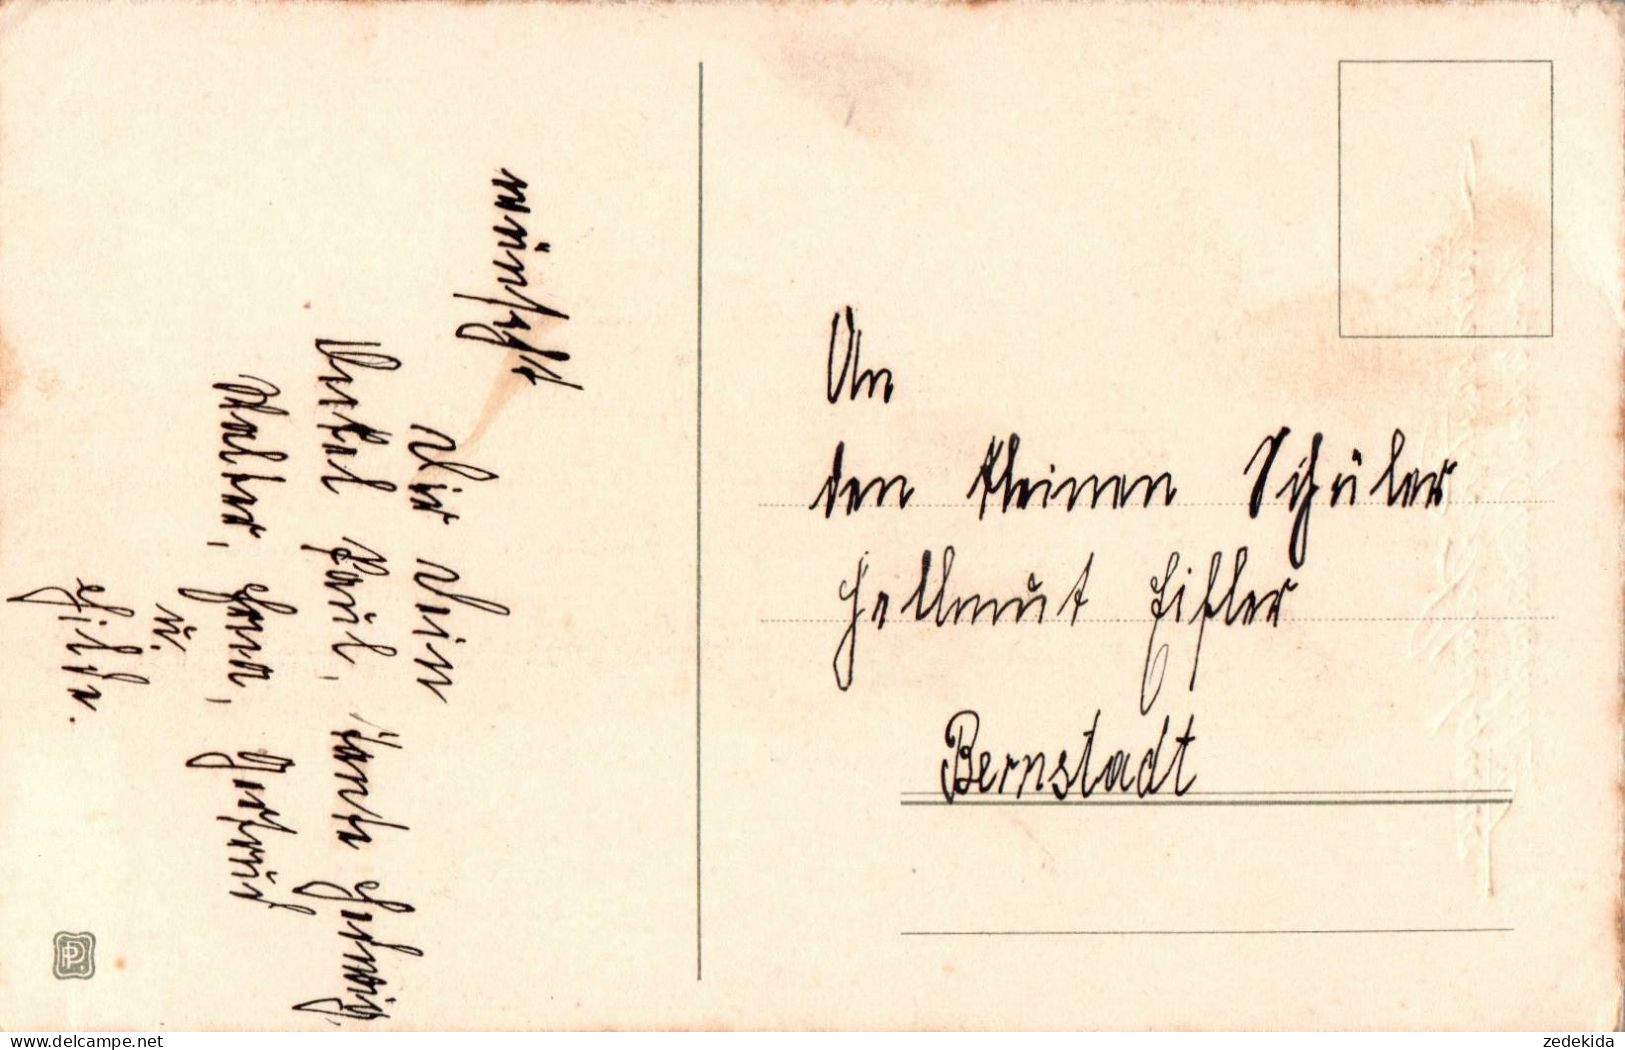 wünscht
Dir Dein
Onkel Paul, Tante Hedwig,
Walter, Hena, Gertrud
u.
Hilde.
An
den kleinen Schüler
Hellmut Eifler
Bernstadt
PP.
www.delcampe.net
zedekida